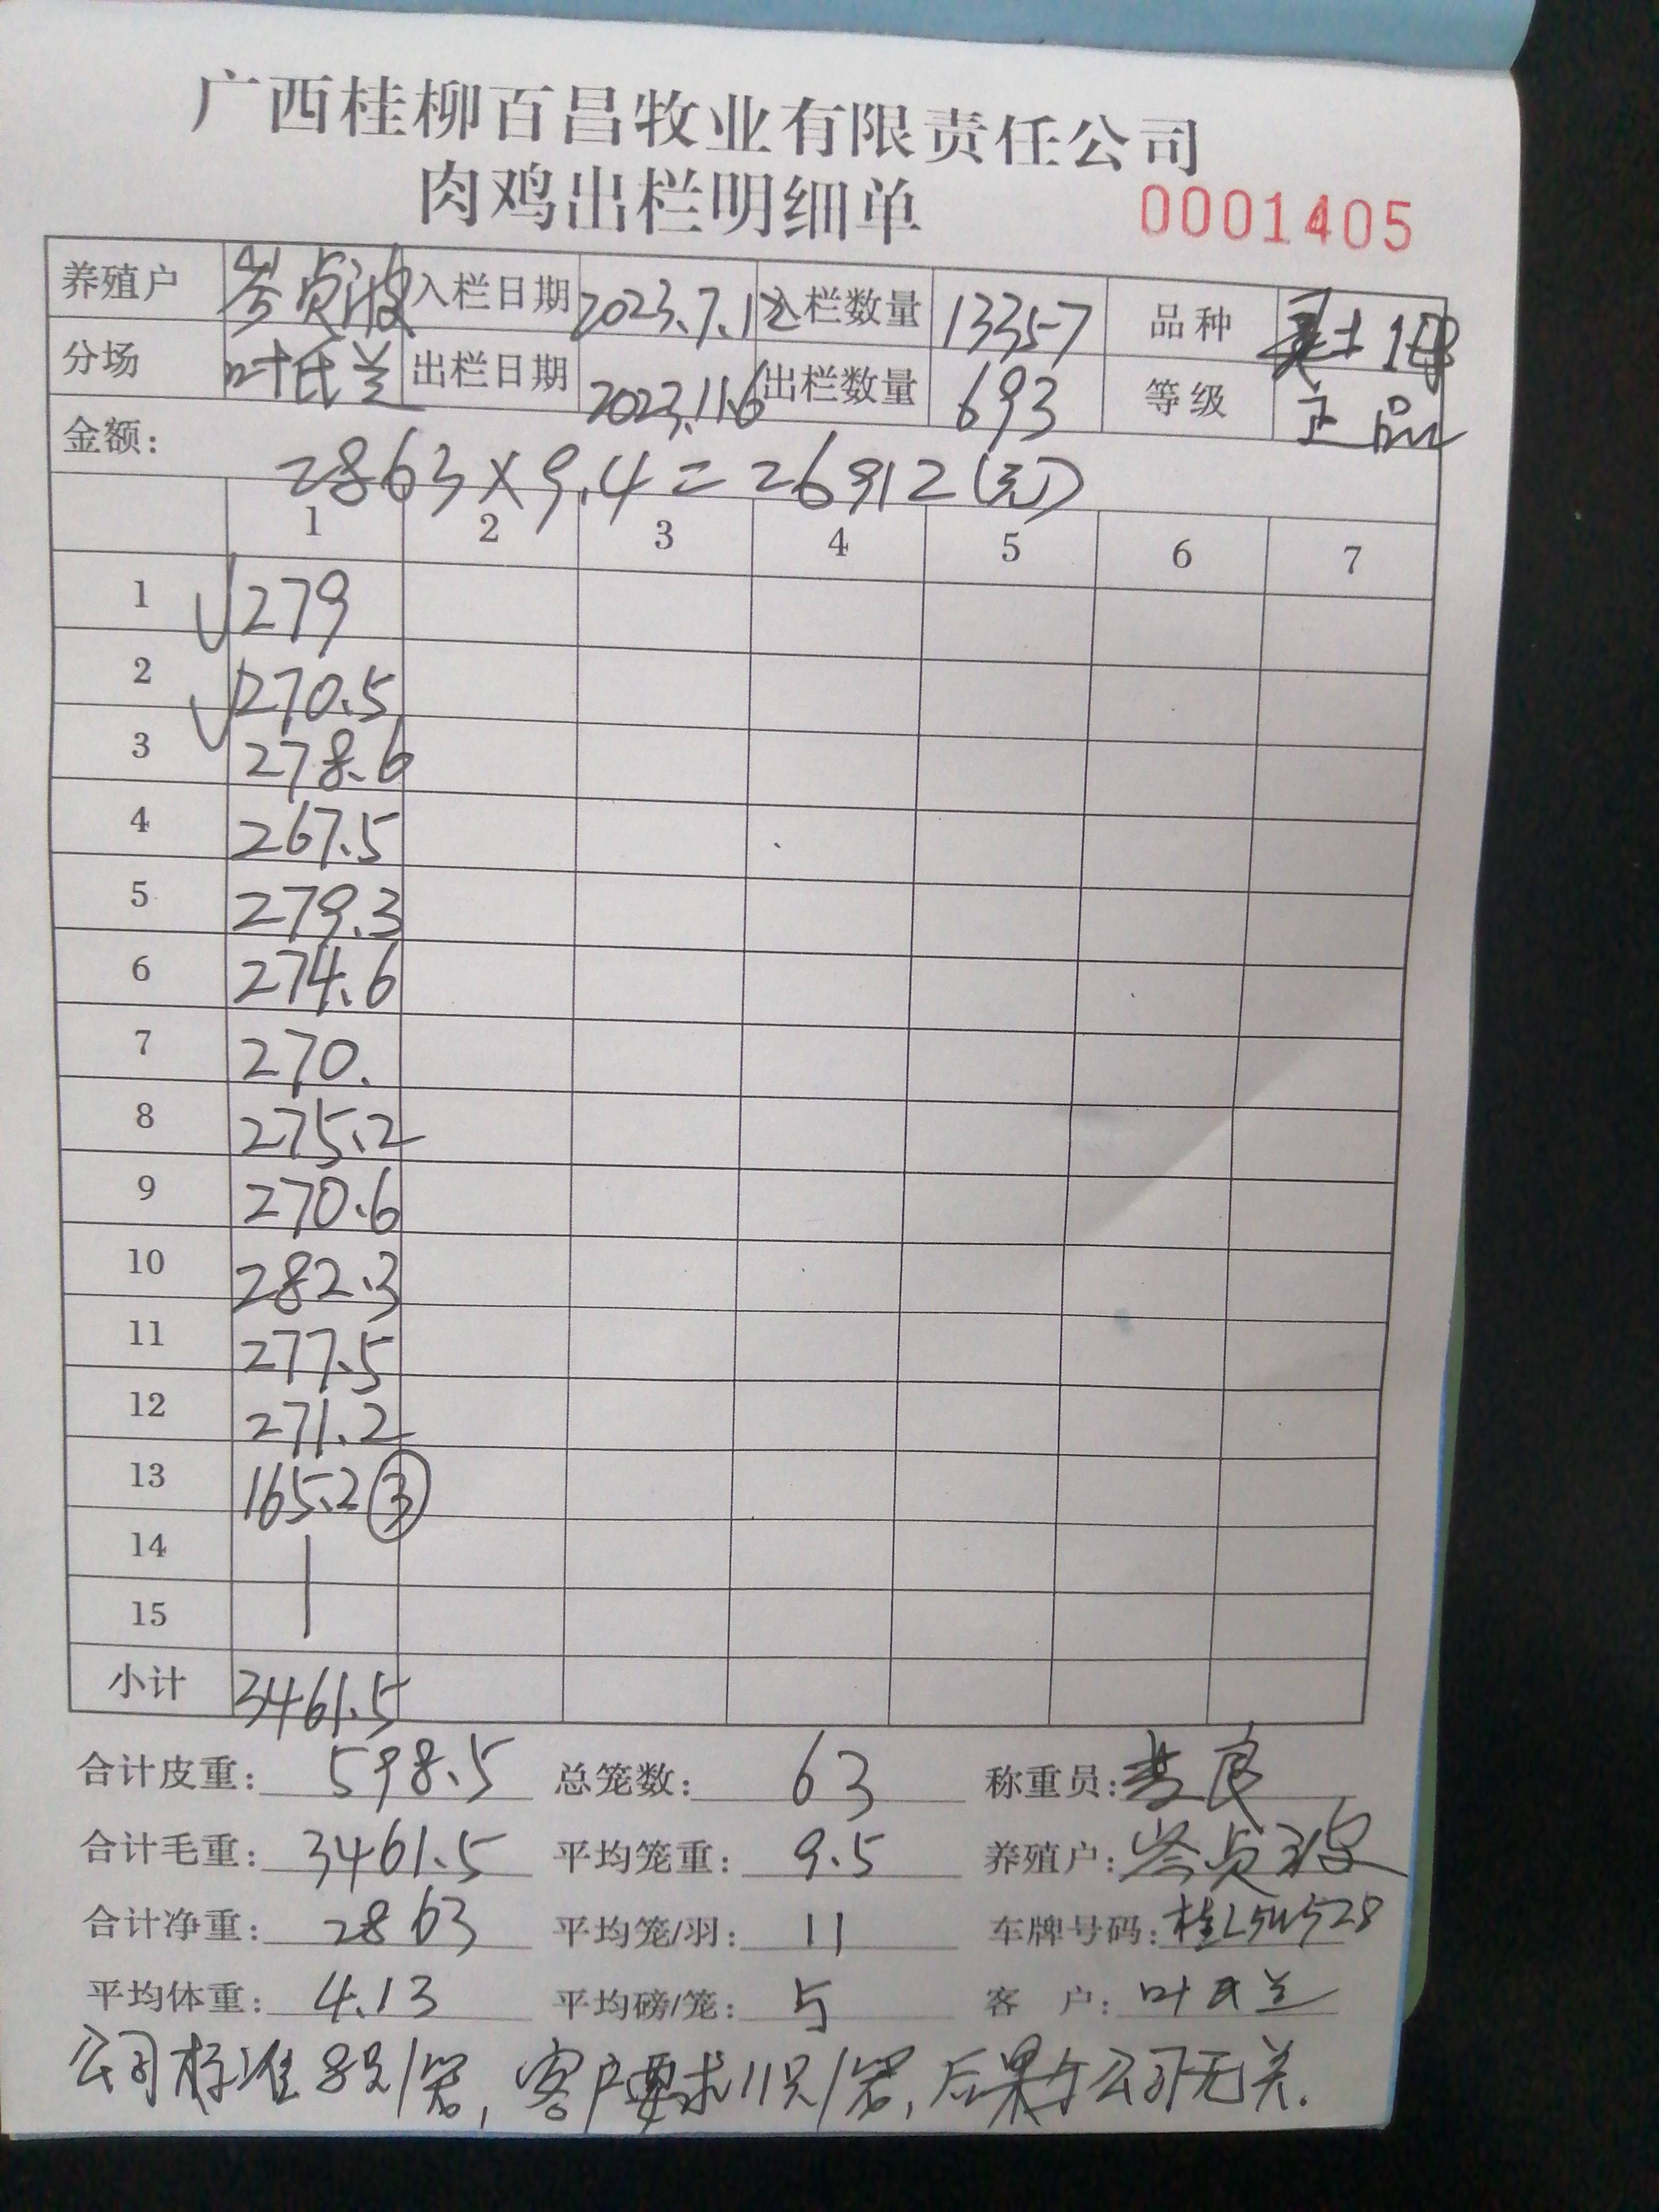 广西桂柳百昌牧业有限责任公司
肉鸡出栏明细单 0001405
养殖户 岑贞波 入栏日期 2023.7.12 入栏数量 13357 品种 土1母
分场 叶氏兰 出栏日期 2023.11.6 出栏数量 693 等级 正品
金额: 2863×9.4=26912(元)
1 2 3 4 5 6 7
1 279
2 270.5
3 278.6
4 267.5
5 279.3
6 274.6
7 270.
8 275.2
9 270.6
10 282.3
11 277.5
12 271.2
13 165.2 ③
14
15
小计 3461.5
合计皮重: 598.5 总笼数: 63 称重员: 良
合计毛重: 3461.5 平均笼重: 9.5 养殖户: 岑贞波
合计净重: 2863 平均笼/羽: 11 车牌号码: 桂L5W528
平均体重: 4.13 平均磅/笼: 5 客户: 叶氏兰
公司标准8只/笼,客户要求11只/笼,后果与公司无关.